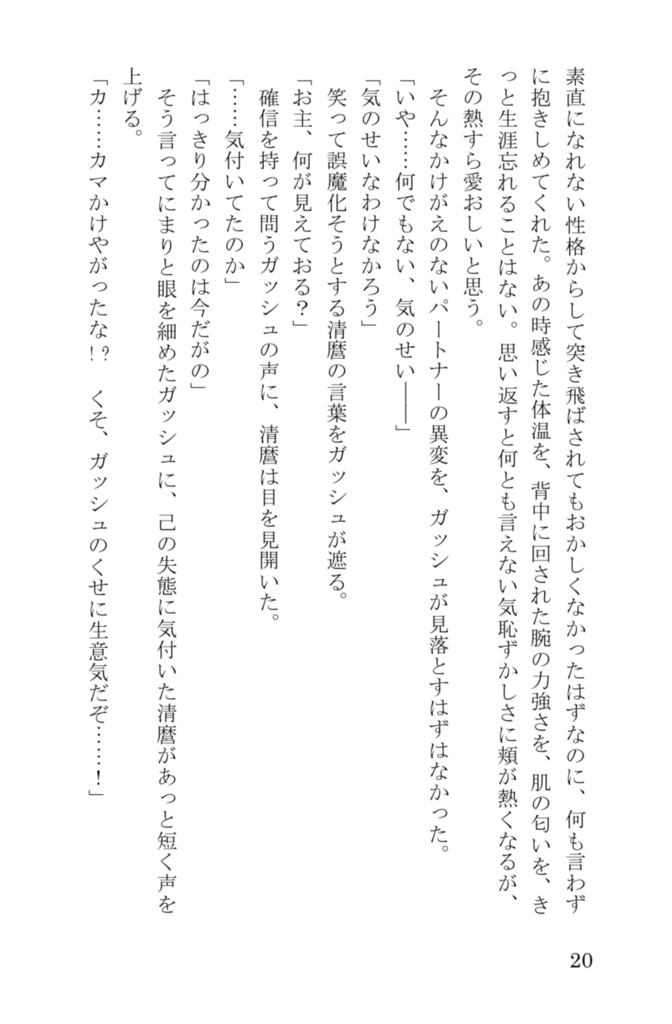 素直になれない性格からして突き飛ばされてもおかしくなかったはずなのに、何も言わず
に抱きしめてくれた。あの時感じた体温を、背中に回された腕の力強さを、肌の匂いを、き
っと生涯忘れることはない。思い返すと何とも言えない気恥ずかしさに頬が熱くなるが、
その熱すら愛おしいと思う。
　そんなかけがえのないパートナーの異変を、ガッシュが見落とすはずはなかった。
「いや……何でもない、気のせい――」
「気のせいなわけなかろう」
　笑って誤魔化そうとする清麿の言葉をガッシュが遮る。
「お主、何が見えておる？」
　確信を持って問うガッシュの声に、清麿は目を見開いた。
「……気付いてたのか」
「はっきり分かったのは今だがの」
　そう言ってにまりと眼を細めたガッシュに、己の失態に気付いた清麿があっと短く声を
上げる。
「カ……カマかけやがったな!?　くそ、ガッシュのくせに生意気だぞ……！」
20